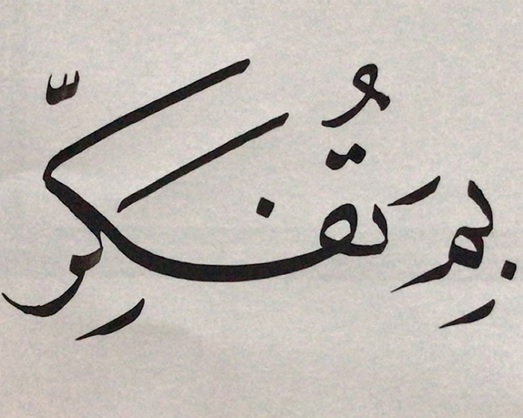 بِمَ تُفكِّر